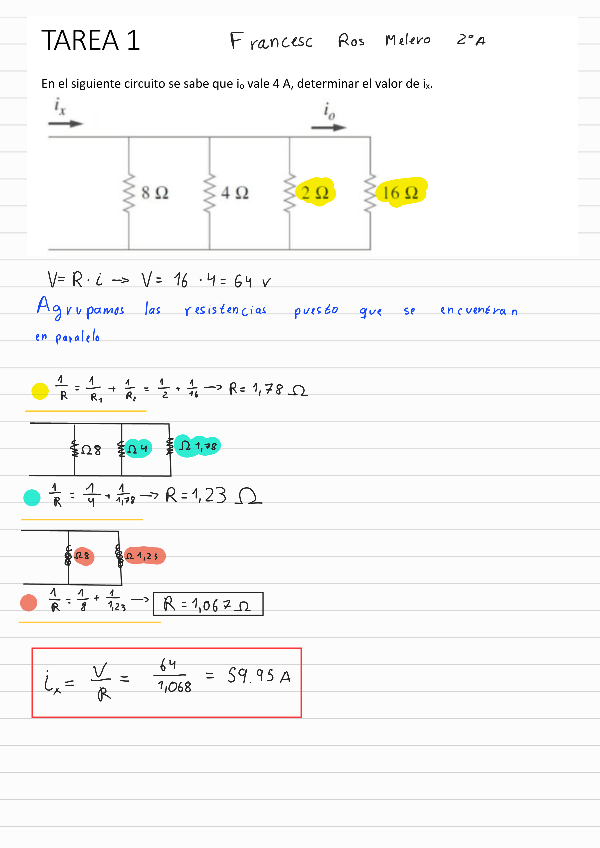 TAREA 1 Francesc Ros Melero 2ºA
En el siguiente circuito se sabe que io vale 4 A, determinar el valor de ix.
ix io
8 Ω 4 Ω 2 Ω 16 Ω
V= R · i → V= 16 · 4 = 64 v
Agrupamos las resistencias puesto que se encuentran
en paralelo
1/R = 1/R1 + 1/R2 = 1/2 + 1/16 → R= 1,78 Ω
Ω8 Ω4 Ω 1,78
1/R = 1/4 + 1/1,78 → R=1,23 Ω
Ω8 Ω 1,23
1/R = 1/8 + 1/1,23 → R = 1,067 Ω
ix = V/R = 64/1,068 = 59.95 A